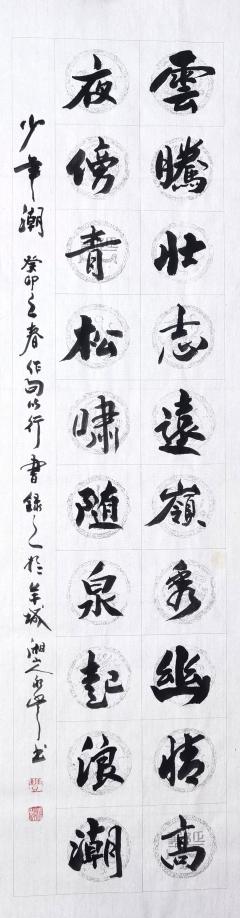 雲騰壯志遠嶺秀幽情高
夜傍青松嘯随泉起浪潮
少年潮 癸卯之春作句以行書録之於羊城湘人書